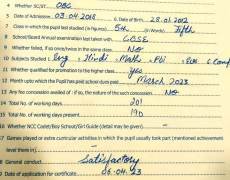 4 Whether SC/ST OBC
5 Date of Admission 03.04.2018 6. Date of Birth 28.01.2012
7 Class in which the pupil last studied (in figures) 5th (in Words) Fifth
8 School/Board Annual examination last taken with CBSE
9 Whether failed, if so once/twice in the same class NO
10 Subjects Studied Eng, Hindi, Maths, Pbi, Evs, Comp
11 Whether qualified for promotion to the higher class yes
12 Month upto which the Pupil has paid school dues paid March 2023
13 Any fee, concession, if so, the nature of such concession No
14 Total No. of working days 201
15 Total No. of working days present 190
16 Whether NCC Cadet/Boy School/Girl Guide (detail may be given) —
17 Games played or extra curricular activities in which the pupil usually took part (mentioned achievement
level them in) —
18 General conduct Satisfactory
19 Date of application for certificate 06.04.23